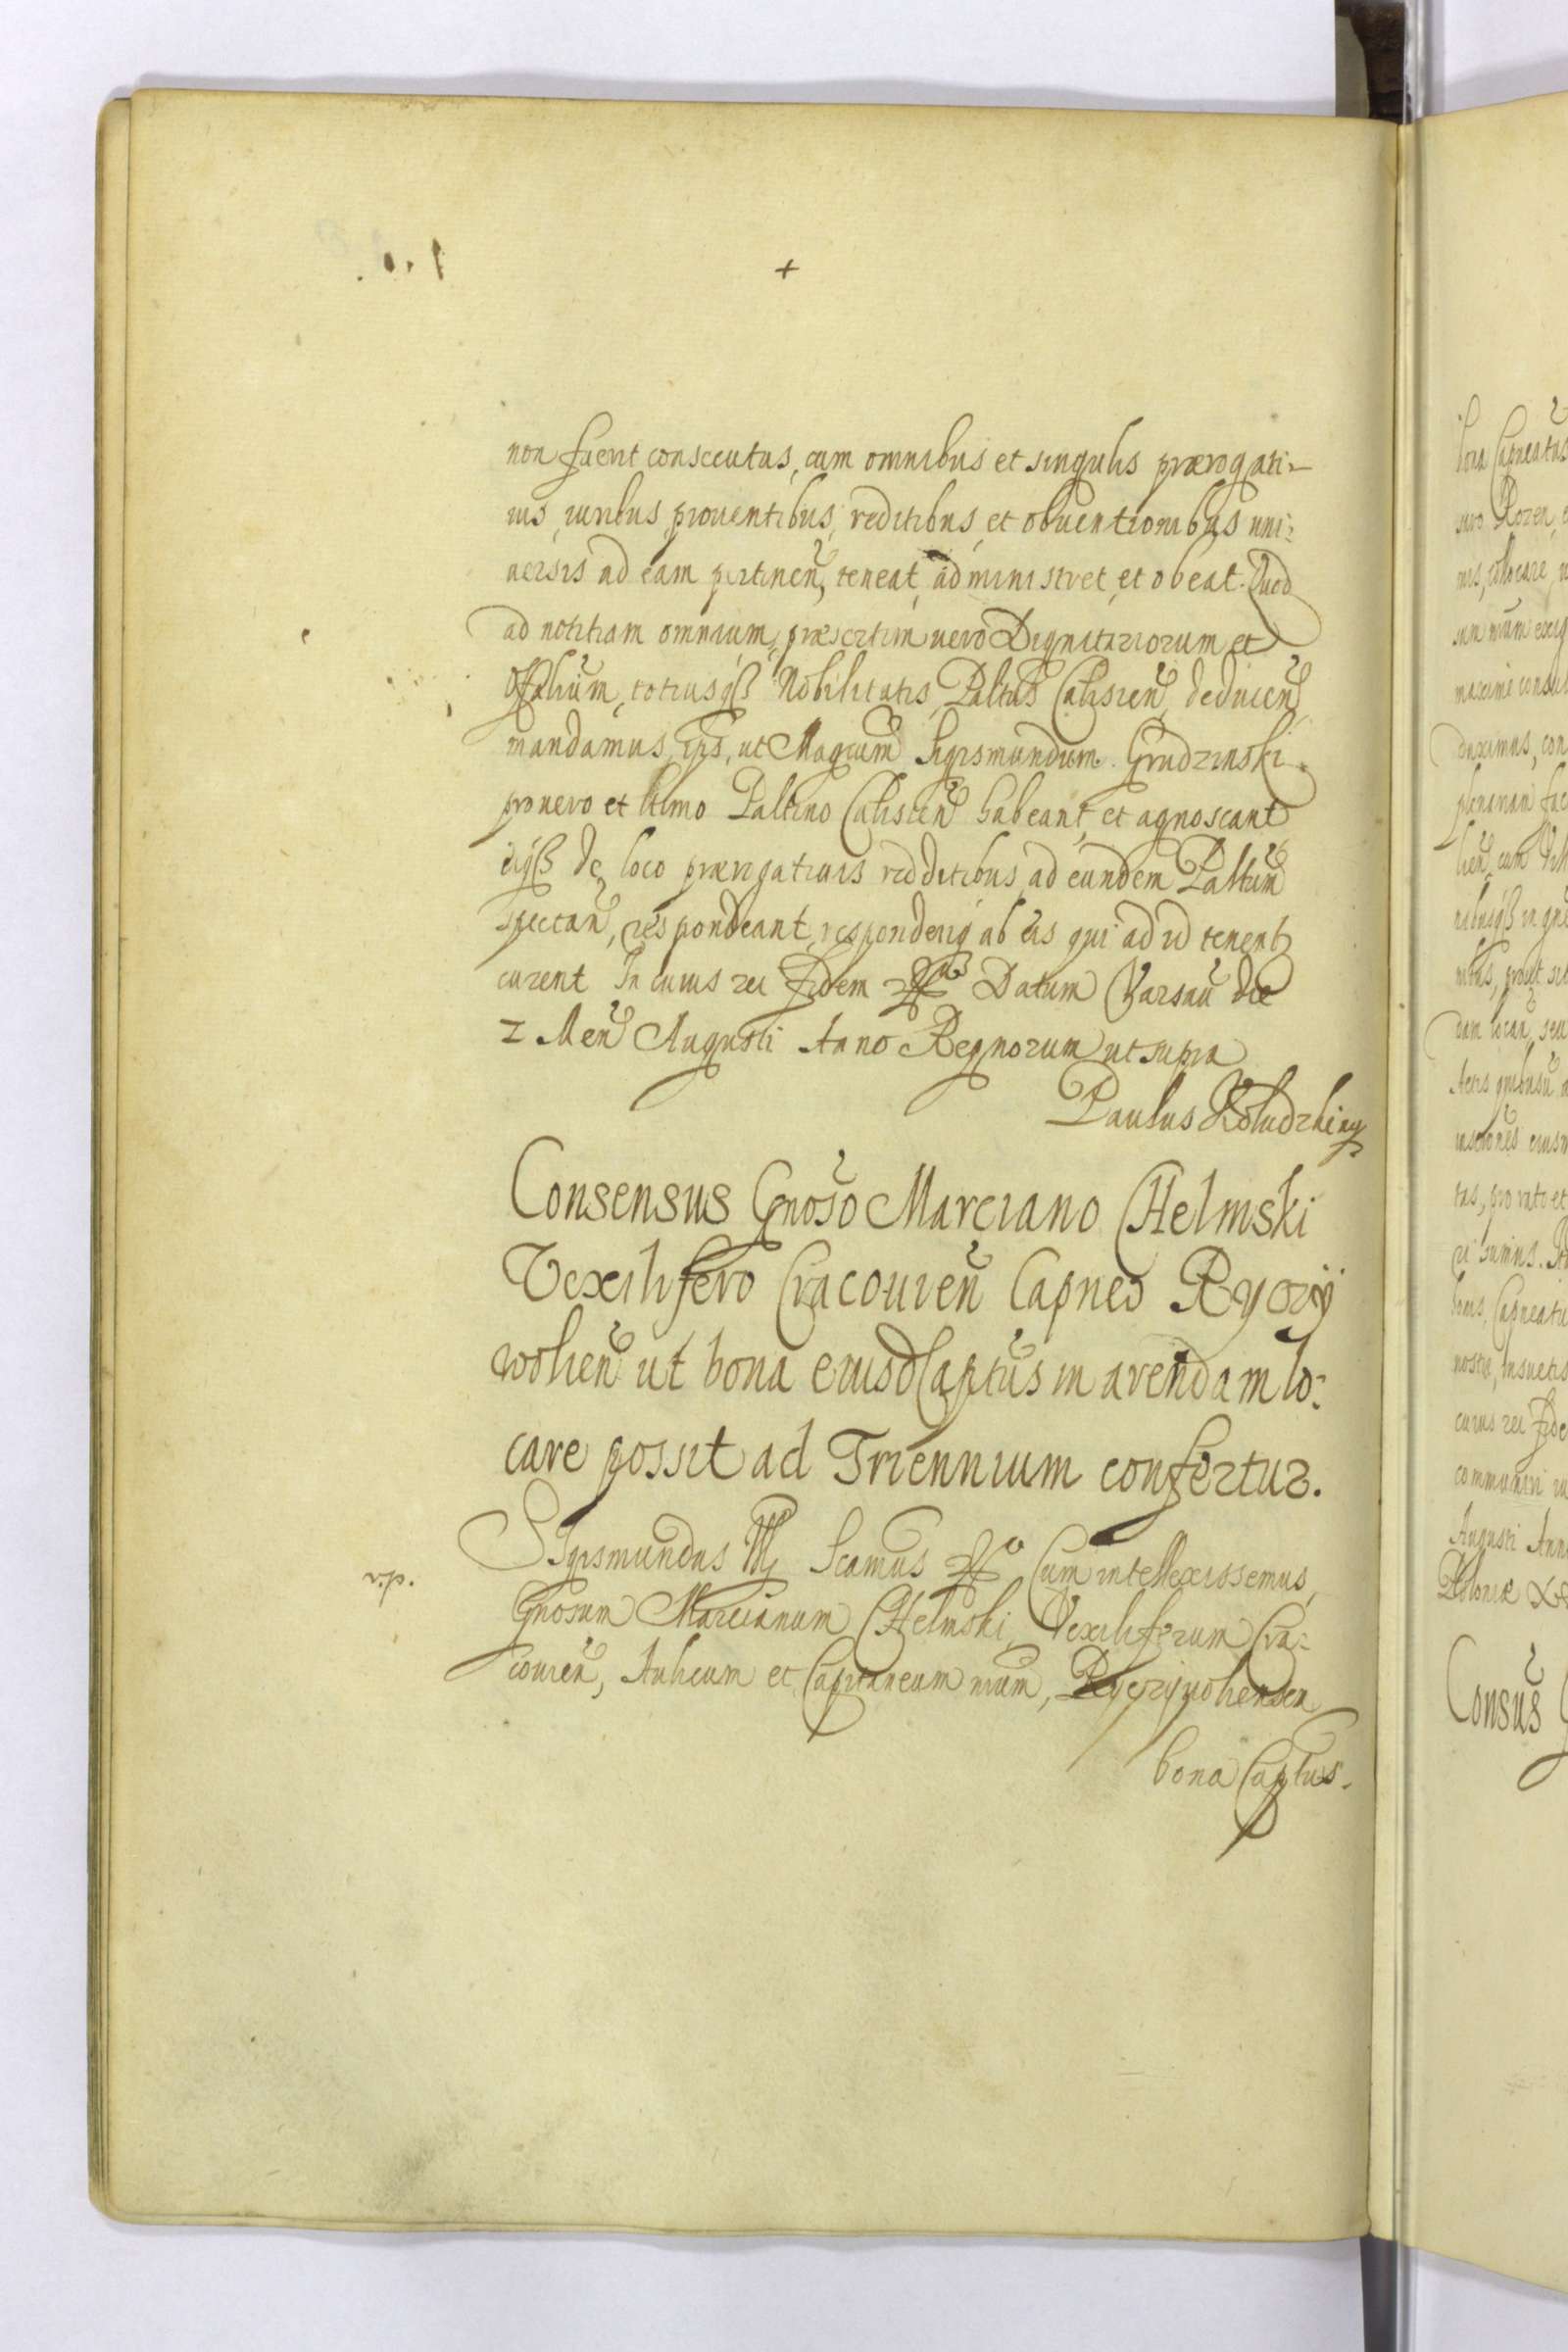 +
non fuerit consecutus, cum omnibus et singulis prærogati-
uis, iuribus, prouentibus, reditibus, et obuentionibus uni-
uersis ad eam pertinen, teneat, administret, et obeat. Quod
ad notitiam omnium, præsertim uero Dignitariorum et
Offalium, totiusqß Nobilitatis Paltus Calisien deducen
mandamus, ut Magcum Sigismundum Grudzinski
pro uero et ltimo Paltino Calisien habeant, et agnoscant
eiqß de loco prærogatiuis redditibus ad eundem Paltum
spectan, respondeant, responderiq ab eis qui ad id tenent
curent In cuius rei fidem Datum Varsau die
2 Men Augusti Anno Regnorum ut supra
Paulus Koludzki
Consensus Gnoso Marciano CHelmski
Vexilifero Cracouien Capneo Ryczy
wolien ut bona eiusd Captus in arendam lo-
care possit ad Triennium confertur.
SIgismundus III Scamus Cum intellexissemus,
Gnosum Marcianum CHelmski, Vexiliferum Cra-
couien, Aulicum et Capitaneum nrum, Ryczywoliensem
bona Captus.
bona Capneatus
mis, collocare
maxime
duximus, con
plenariam fac
lien, cum
dam locan, seu
tas, pro rato et
ri sumus.
nostra, insuetis
cuius rei fide
communiri
Augusti Anno
Poloniæ
Consus